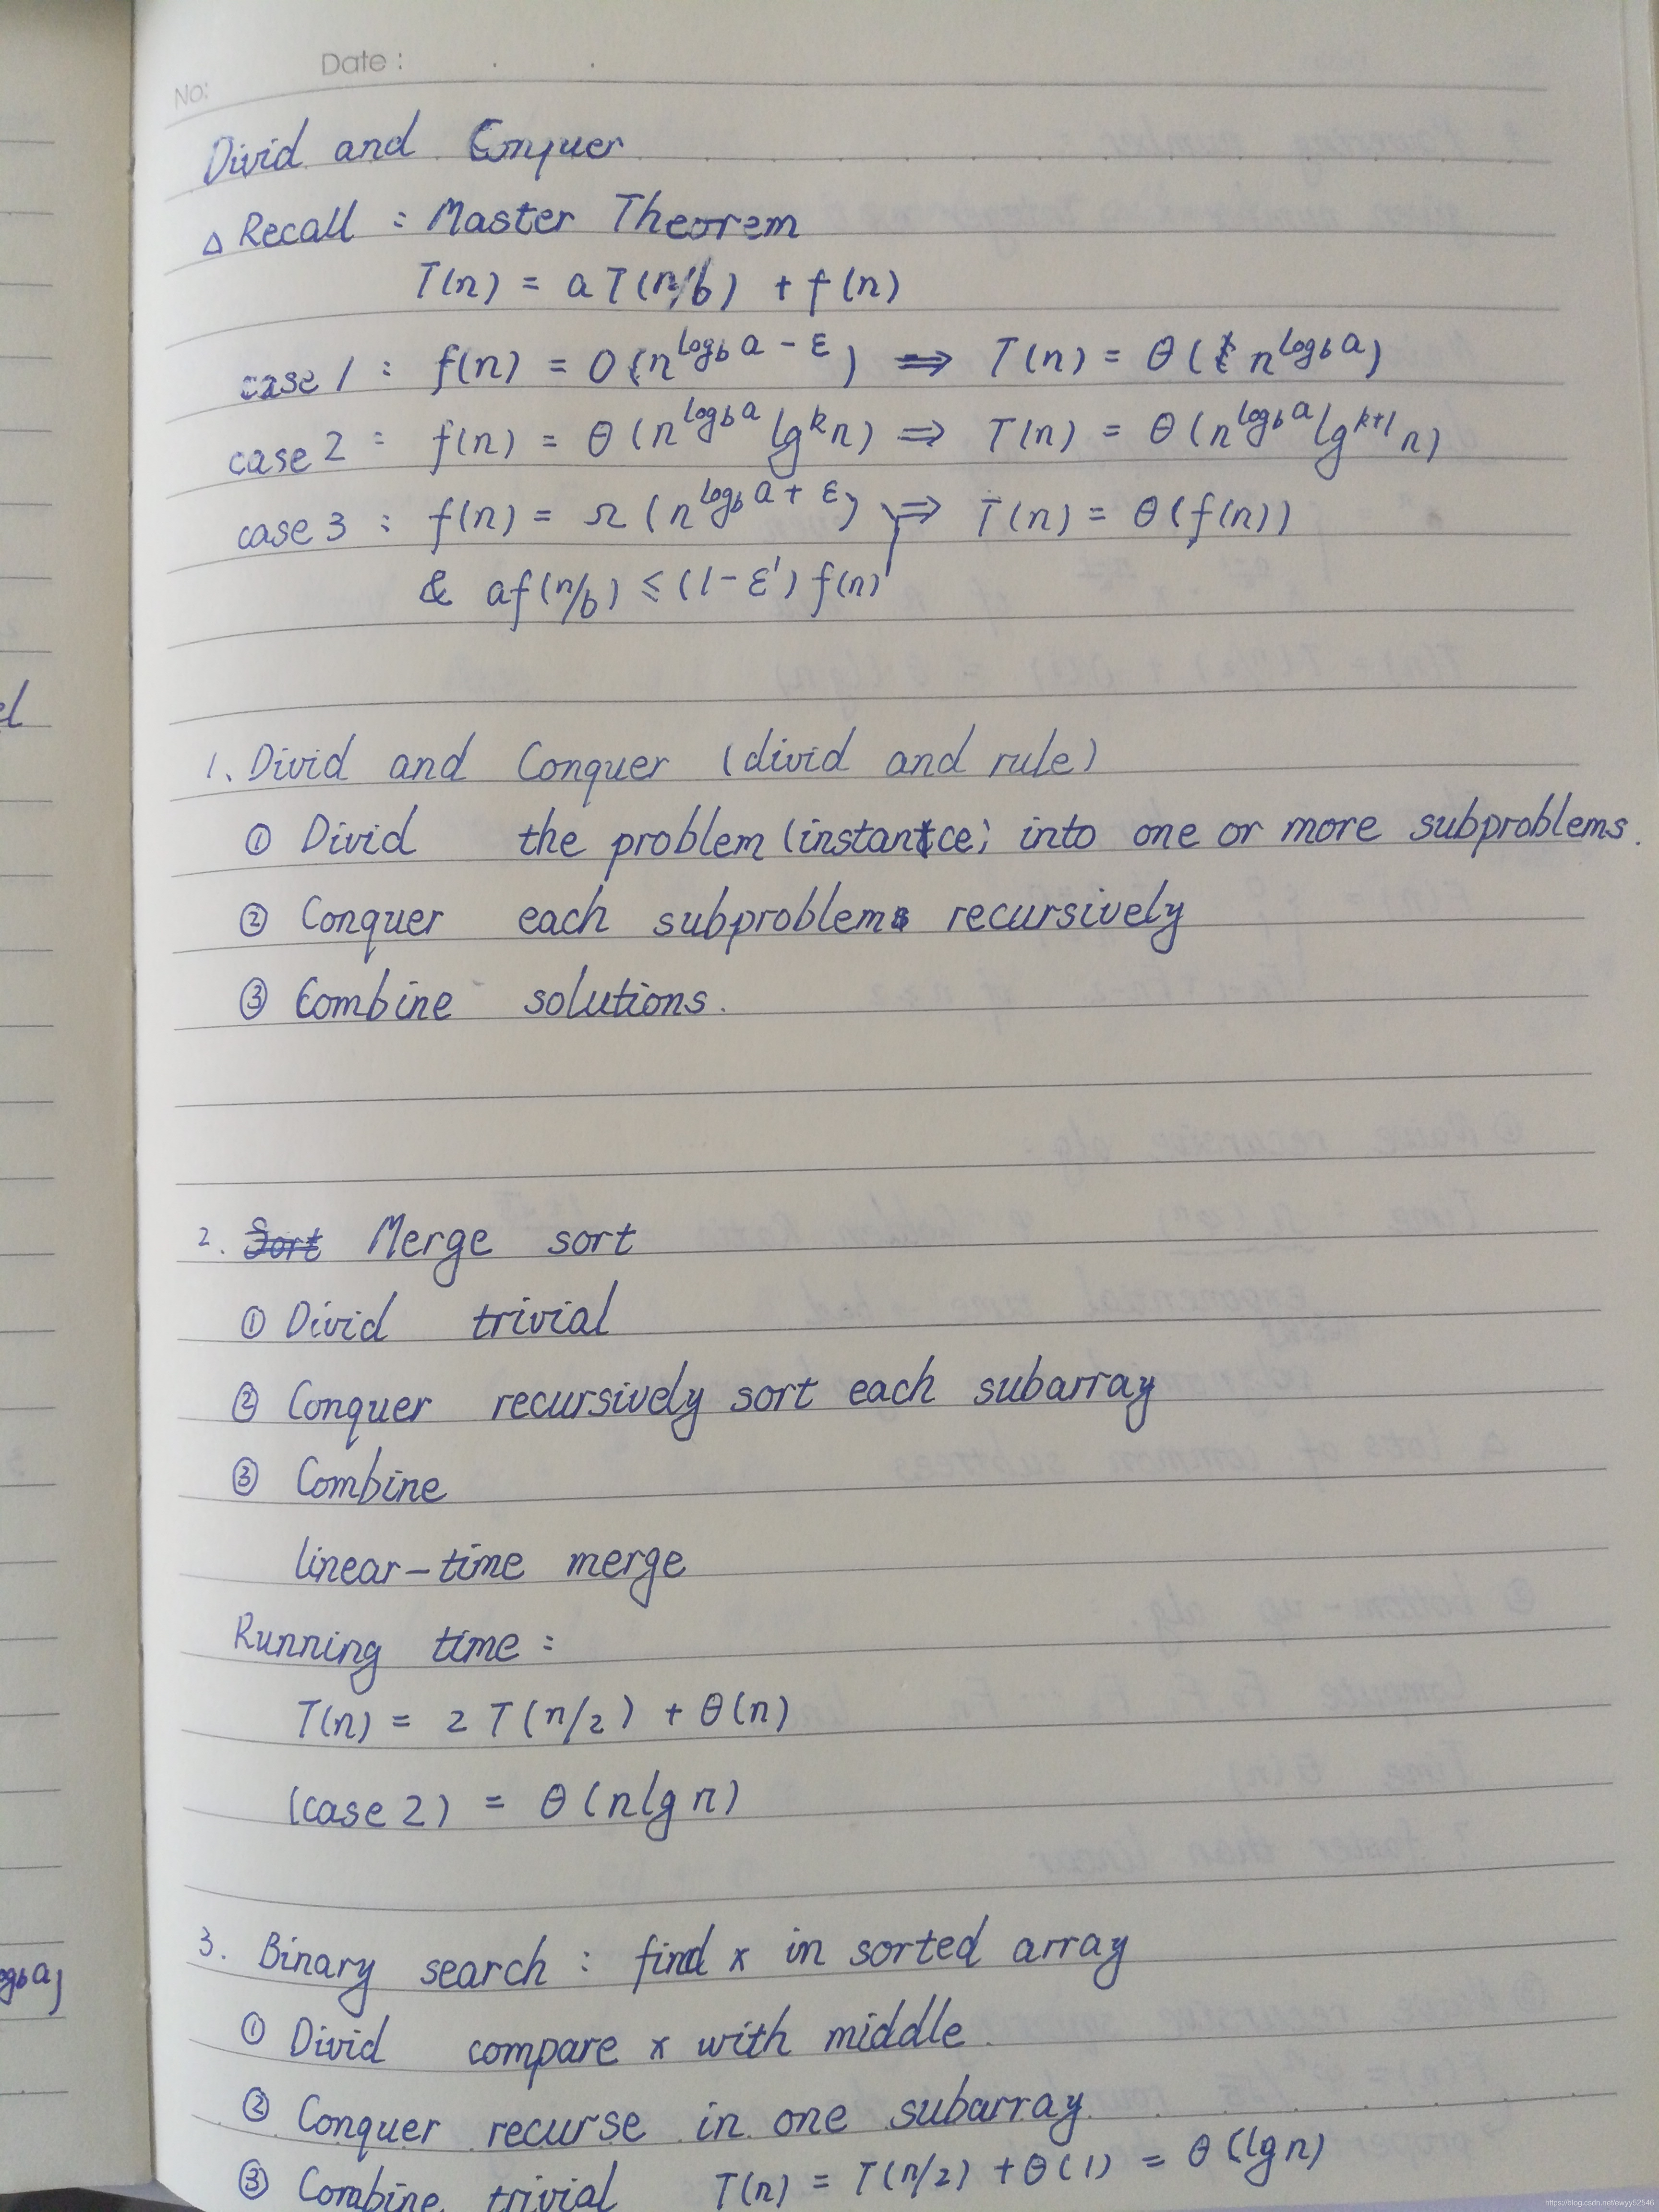 Date :
No:
Divid and Conquer
△ Recall : Master Theorem
T(n) = a T(n/b) + f(n)
case 1 : f(n) = O(n^{log_b a - ε}) ⟹ T(n) = Θ(n^{log_b a})
case 2 : f(n) = Θ(n^{log_b a} lg^k n) ⟹ T(n) = Θ(n^{log_b a} lg^{k+1} n)
case 3 : f(n) = Ω(n^{log_b a + ε}) ⟹ T(n) = Θ(f(n))
& af(n/b) ≤ (1-ε') f(n)
el
1、Divid and Conquer (divid and rule)
① Divid the problem (instance) into one or more subproblems.
② Conquer each subproblem recursively
③ Combine solutions.
2. Sort Merge sort
① Divid trivial
② Conquer recursively sort each subarray
③ Combine
linear-time merge
Running time :
T(n) = 2 T(n/2) + Θ(n)
(case 2) = Θ(n lg n)
3. Binary search : find x in sorted array
① Divid compare x with middle
② Conquer recurse in one subarray
③ Combine trivial T(n) = T(n/2) + Θ(1) = Θ(lg n)
https://blog.csdn.net/ewyy52546